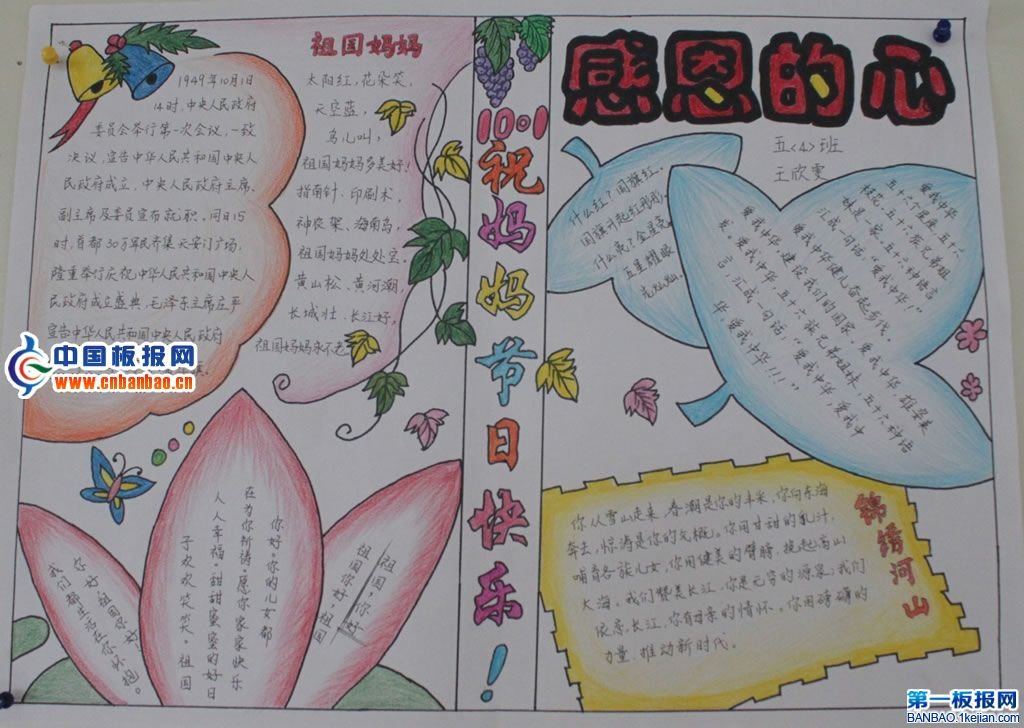 1949年10月1日
14时,中央人民政府
委员会举行第一次会议,一致
决议,宣告中华人民共和国中央人
民政府成立,中央人民政府主席、
副主席及委员宣布就职。同日15
时,首都30万军民齐集天安门广场,
隆重举行庆祝中华人民共和国中央人
民政府成立盛典,毛泽东主席庄严
宣告中华人民共和国中央人民政府
祖国妈妈
太阳红,花朵笑,
天空蓝,
鸟儿叫,
祖国妈妈多美好!
指南针、印刷术,
神农架、海南岛,
祖国妈妈处处宝。
黄山松、黄河潮,
长城壮、长江好,
祖国妈妈永不老
10·1
祝妈妈节日快乐!
感恩的心
五<4>班
王欣雯
什么红?国旗红。
国旗升起红彤彤,
什么亮?金星亮
五星耀眼
亮灿灿。
爱我中华
五十六个星座,五十六
枝花,五十六族兄弟姐
妹是一家,五十六种语言
汇成一句话,"爱我中华"
爱我中华健儿奋起步伐,
爱我中华,建设我们的国家,爱我中华,雄姿英
发。爱我中华,五十六族兄弟姐妹,五十六种语
言,汇成一句话,"爱我中华,爱我中
华,爱我中华!!!"
锦绣河山
你从雪山走来,春潮是你的丰采,你向东海
奔去,惊涛是你的气概。你用甘甜的乳汁,
哺育各族儿女,你用健美的臂膀,挽起高山
大海。我们赞美长江,你是无穷的源泉;我们
依恋,长江,你有母亲的情怀。你用磅礴的
力量,推动新时代。
我们都生活在你怀抱。
你好,祖国你好!
你好。你的儿女都
在为你祈祷。愿你家家快乐
人人幸福。甜甜蜜蜜的好日
子欢欢笑笑。祖国
祖国,你好
祖国你好,祖国
中国板报网
www.cnbanbao.cn
第一板报网
BANBAO.1kejian.com